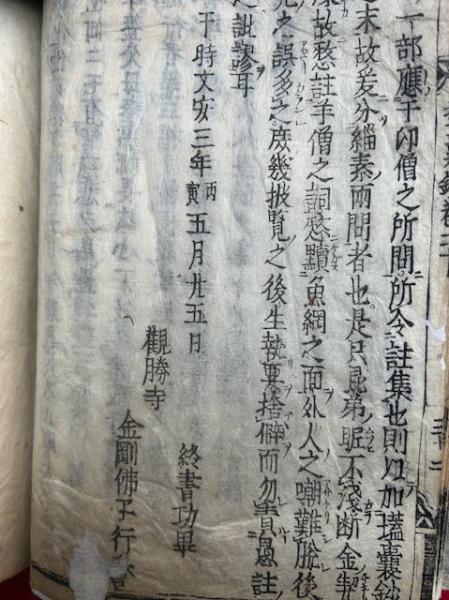 一部應于卬僧之所問所令註集也則以加壒囊鈔
末故爰分緇素兩問者也是只昆弟眤不淺断金契
深故愁註羊僧之詞悉黷魚網之面外人之嘲難脱後
見之誤多之庶幾披覽之後生執要捨僻而勿責過註
之訛謬耳
于時文安三年丙寅五月廿五日
終書功畢
觀勝寺
金剛佛子行